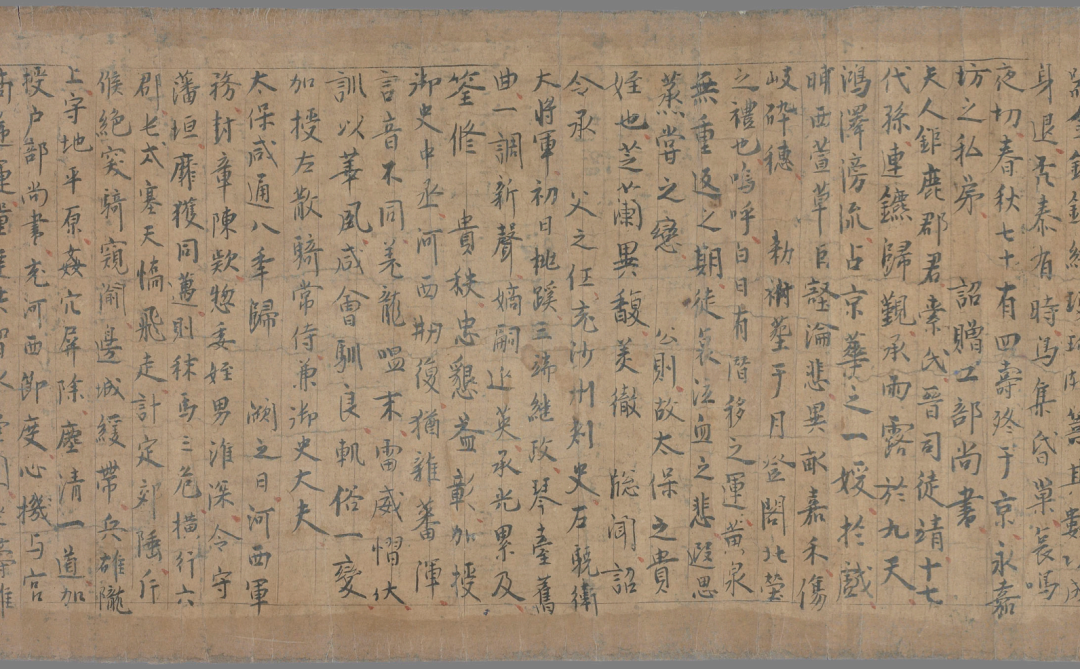 身退否泰有時鳥集昏巢哀鳴
夜切春秋七十有四壽終于京永嘉
坊之私第 詔贈工部尚書
夫人鉅鹿郡君索氏晉司徒靖十七
代孫連鑣歸覲承雨露於九天
鴻澤滂流占京華之一媛於戲
晡西萱草巨壑淪悲異畝嘉禾傷
岐碎穗 勑祔塋于月登閣北塋
之禮也嗚呼白日有潛移之運黃泉
無重返之期徒哀泣血之悲遐思
蒸嘗之戀 公則故太保之貴
姪也芝蘭異馥美徹 聰聞詔
令承 父之任充沙州刺史左驍衛
大將軍初日桃蹊三端継政琴臺舊
曲一調新聲嫡嗣延英承光累及
筌修 貴秩忠懇益彰加授
御史中丞河西刱復猶雜蕃渾
言音不同羌龍嗢末雷威慴伏
訓以華風咸會馴良軌俗一變
加授左散騎常侍兼御史大夫
太保咸通八年歸 闕之日河西軍
務封章陳款惣委姪男淮深令守
藩垣靡獲同邁則秣馬三危橫行六
郡屯戍塞天憍飛走計定郊陲斥
候絕突騎窺窬邊城緩帶兵雄隴
上守地平原姦宄屏除塵清一道加
授戶部尚書充河西節度心機与宮